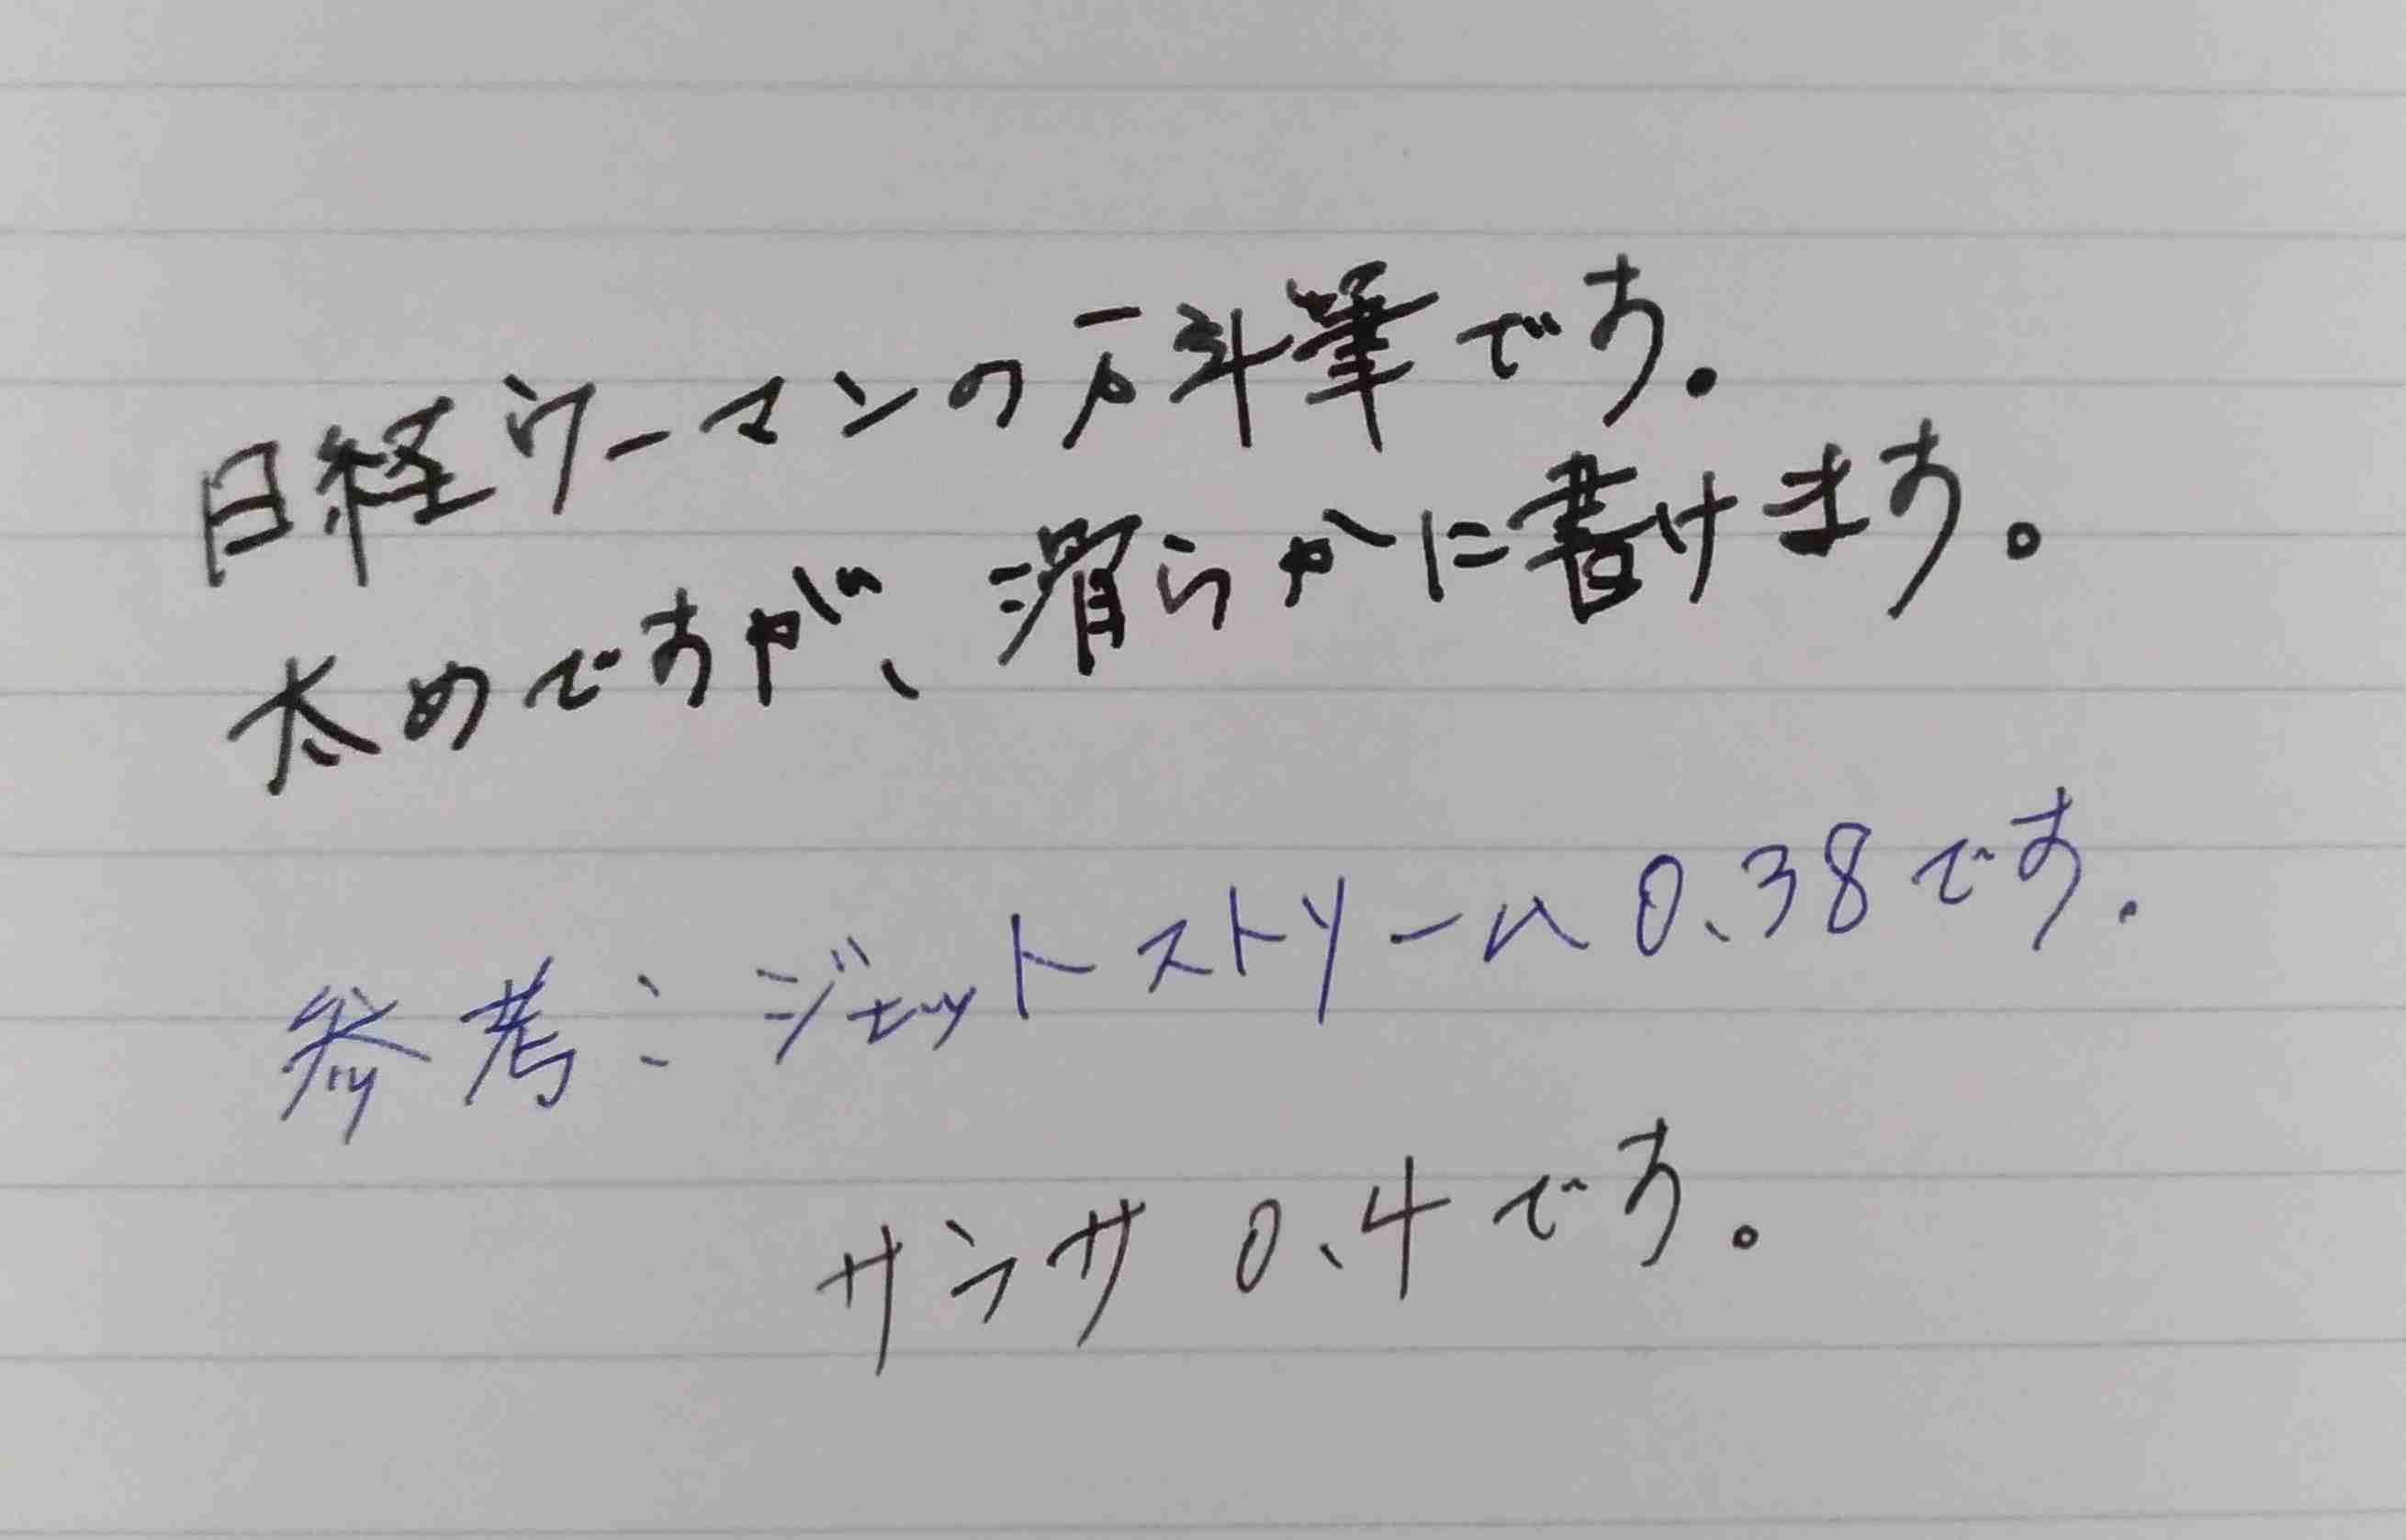 日経ウーマンの万斗筆です。
太めですが、滑らかに書けます。
参考：ジェットストリーム0.38です.
サラサ 0.4です。